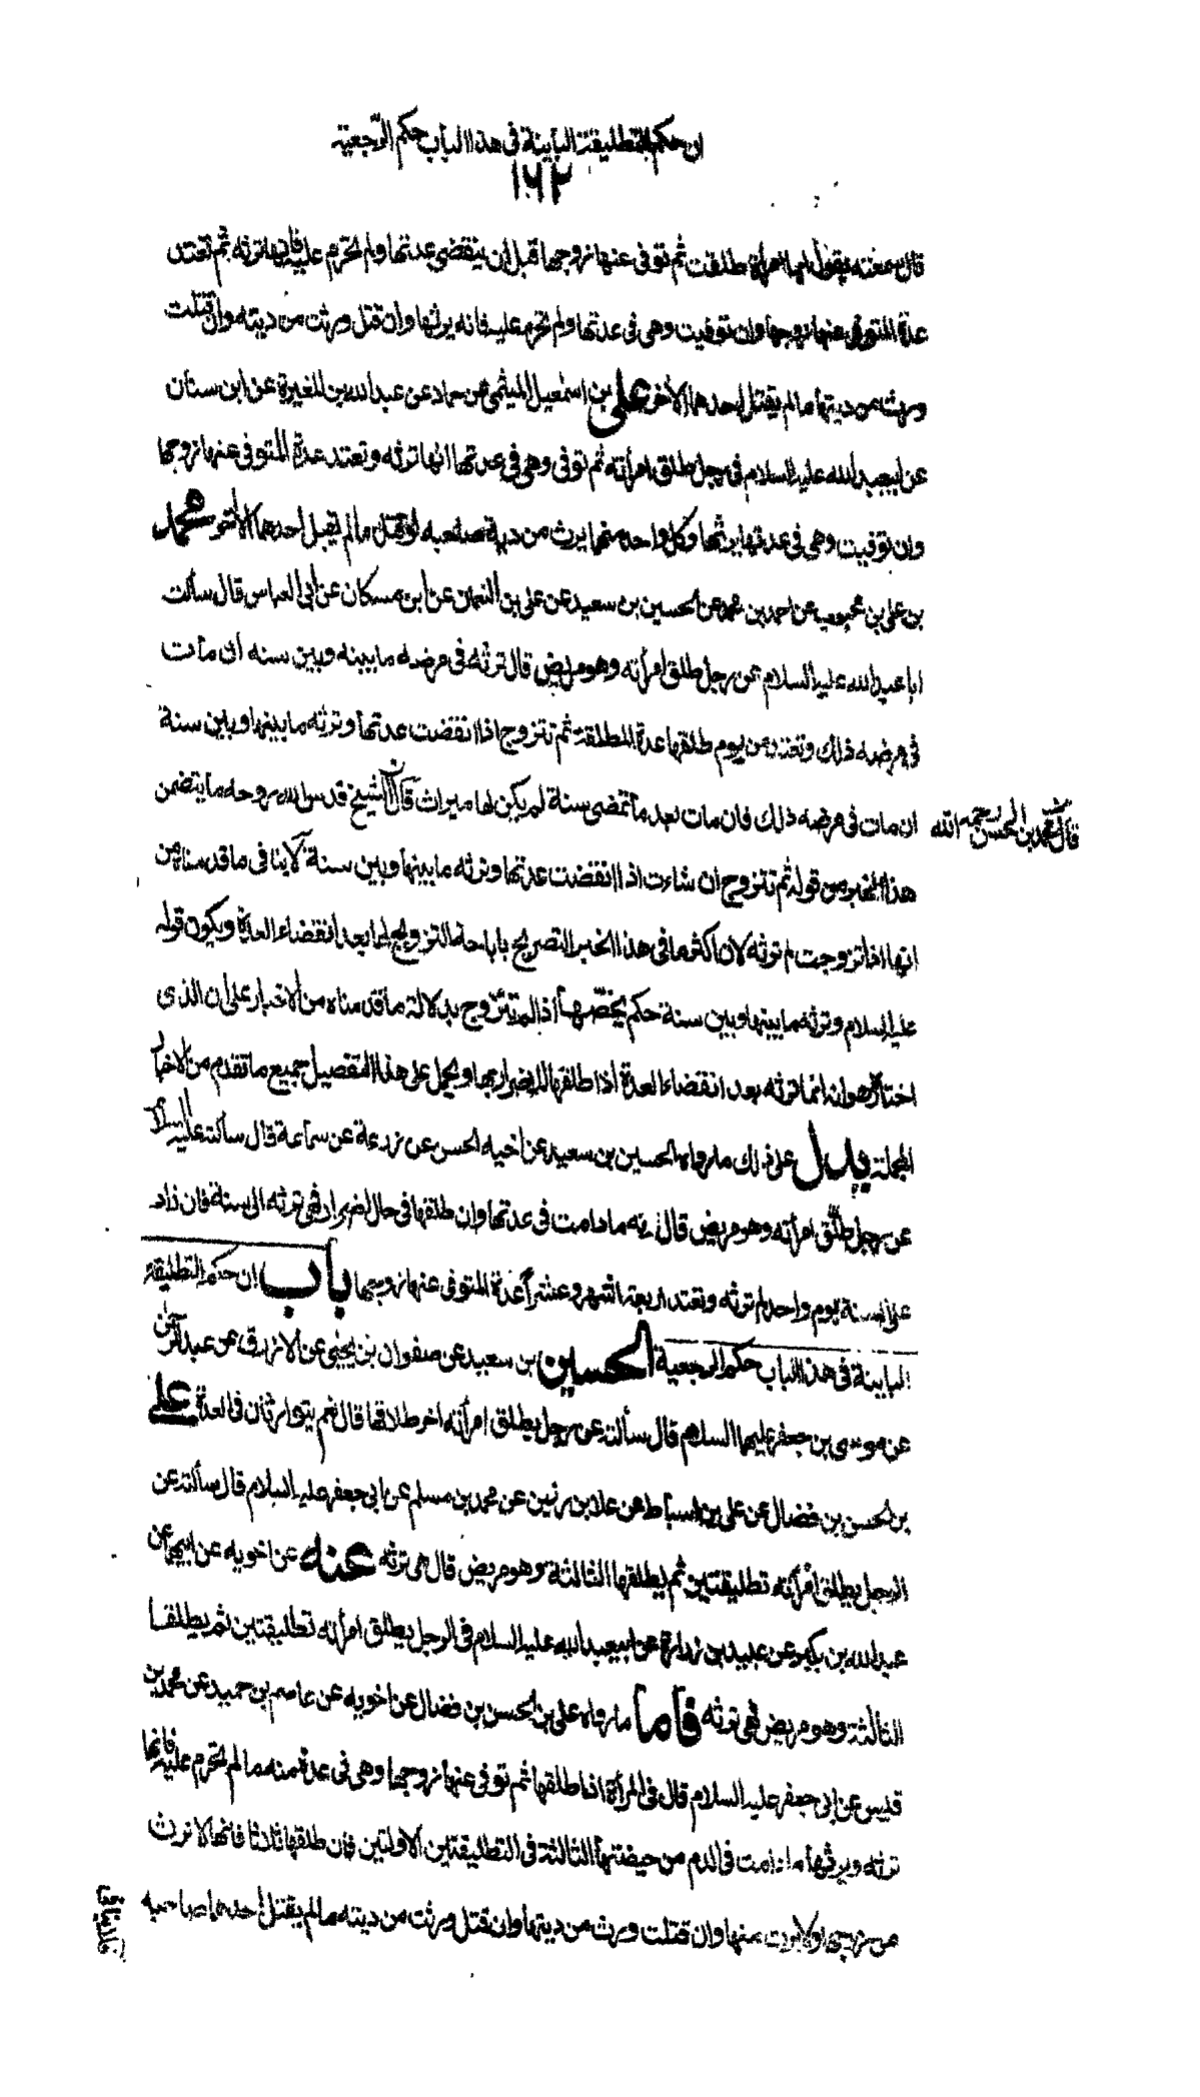 ان حكم التطليقة البآينة فى هذا الباب حكم الرّجعية
١٦٢
قال سمعته يقول ايما امرأة طلقت ثم توفى عنها زوجها قبل ان ينقضى عدتها ولم تحرم عليه فانها ترثه ثم تعتد
عدة المتوفى عنها زوجها وان توفيت وهى فى عدتها ولم تحرم عليه فانه يرثها وان قتل ورثت من ديته وان قتلت
ورث من ديتها ما لم يقتل احدهما الآخر على بن اسمعيل الميثمى عن حماد عن عبد الله بن المغيرة عن ابن سنان
عن ابيعبد الله عليه السلام فى رجل طلق امرأته ثم توفى وهى فى عدتها انها ترثه وتعتد عدة المتوفى عنها زوجها
وان توفيت وهى فى عدتها يرثها وكل واحد منهما يرث من دية صاحبه لو قتل ما لم يقتل احدهما الآخر محمد
بن على بن محبوب عن احمد بن محمد عن الحسين بن سعيد عن على بن النعمان عن ابن مسكان عن ابى العباس قال سألت
ابا عبد الله عليه السلام عن رجل طلق امرأته وهو مريض قال ترثه فى مرضه ما بينه وبين سنه ان مات
فى مرضه ذلك وتعتد من يوم طلقها عدة المطلقة ثم تتزوج اذا انقضت عدتها وترثه ما بينها وبين سنة
ان مات فى مرضه ذلك فان مات بعد ما تمضى سنة لم يكن لها ميراث قال الشيخ قدس الله روحه ما يتضمن
قال محمد بن الحسن رحمه الله
هذا الخبر من قوله ثم تتزوج ان شاءت اذا انقضت عدتها وترثه ما بينها وبين سنة لا ينافى ما قدمناه من
انها اذا تزوجت لم ترثه لان اكثر ما فى هذا الخبر التصريح باباحة التزويج لها بعد انقضاء العدة ويكون قوله
عليه السلام وترثه ما بينها وبين سنة حكم يخصّها اذا لم تتزوج بدلالة ما قدمناه من الاخبار على ان الذى
اختاره هو انه انما ترثه بعد انقضاء العدة اذا طلقها للاضرار بها ويحمل على هذا التفصيل جميع ما تقدم من الاخبار
المجملة يدل على ذلك ما رواه الحسين بن سعيد عن اخيه الحسن عن زرعة عن سماعة قال سألته عليه السلام
عن رجل طلّق امرأته وهو مريض قال ترثه ما دامت فى عدتها وان طلقها فى حال اضرار فهى ترثه الى سنة فان زاد
على السنة يوم واحد لم ترثه وتعتد اربعة اشهر وعشراً عدة المتوفى عنها زوجها باب ان حكم التطليقة
الباينة فى هذا الباب حكم الرجعية الحسين بن سعيد عن صفوان بن يحيى عن الازرق عن عبد الرحمن
عن موسى بن جعفر عليهما السلام قال سألته عن رجل يطلق امرأته اخر طلاقها قال نعم يتوارثان فى العدة على
بن الحسن بن فضال عن على بن اسباط عن علا بن رزين عن محمد بن مسلم عن ابى جعفر عليه السلام قال سألته عن
الرجل يطلق امرأته تطليقتين ثم يطلقها الثالثة وهو مريض قال هى ترثه عنه عن اخويه عن ابيهما عن
عبد الله بن بكير عن عبيد بن زرارة عن ابيعبد الله عليه السلام فى الرجل يطلق امرأته تطليقتين ثم يطلقها
الثالثة وهو مريض فهى ترثه فاما ما رواه على بن الحسن بن فضال عن اخويه عن عاصم بن حميد عن محمد بن
قيس عن ابى جعفر عليه السلام قال فى المرأة اذا طلقها ثم توفى عنها زوجها وهى فى عدة منه ما لم تحرم عليه فانها
ترثه ويرثها ما دامت فى الدم من حيضتها الثالثة فى التطليقتين الاولتين فان طلقها ثلاثا فانها لا ترث
من زوجها ولا يرث منها وان قتلت ورث من ديتها وان قتل ورثت من ديته ما لم يقتل احدهما صاحبه
فلا ينافى